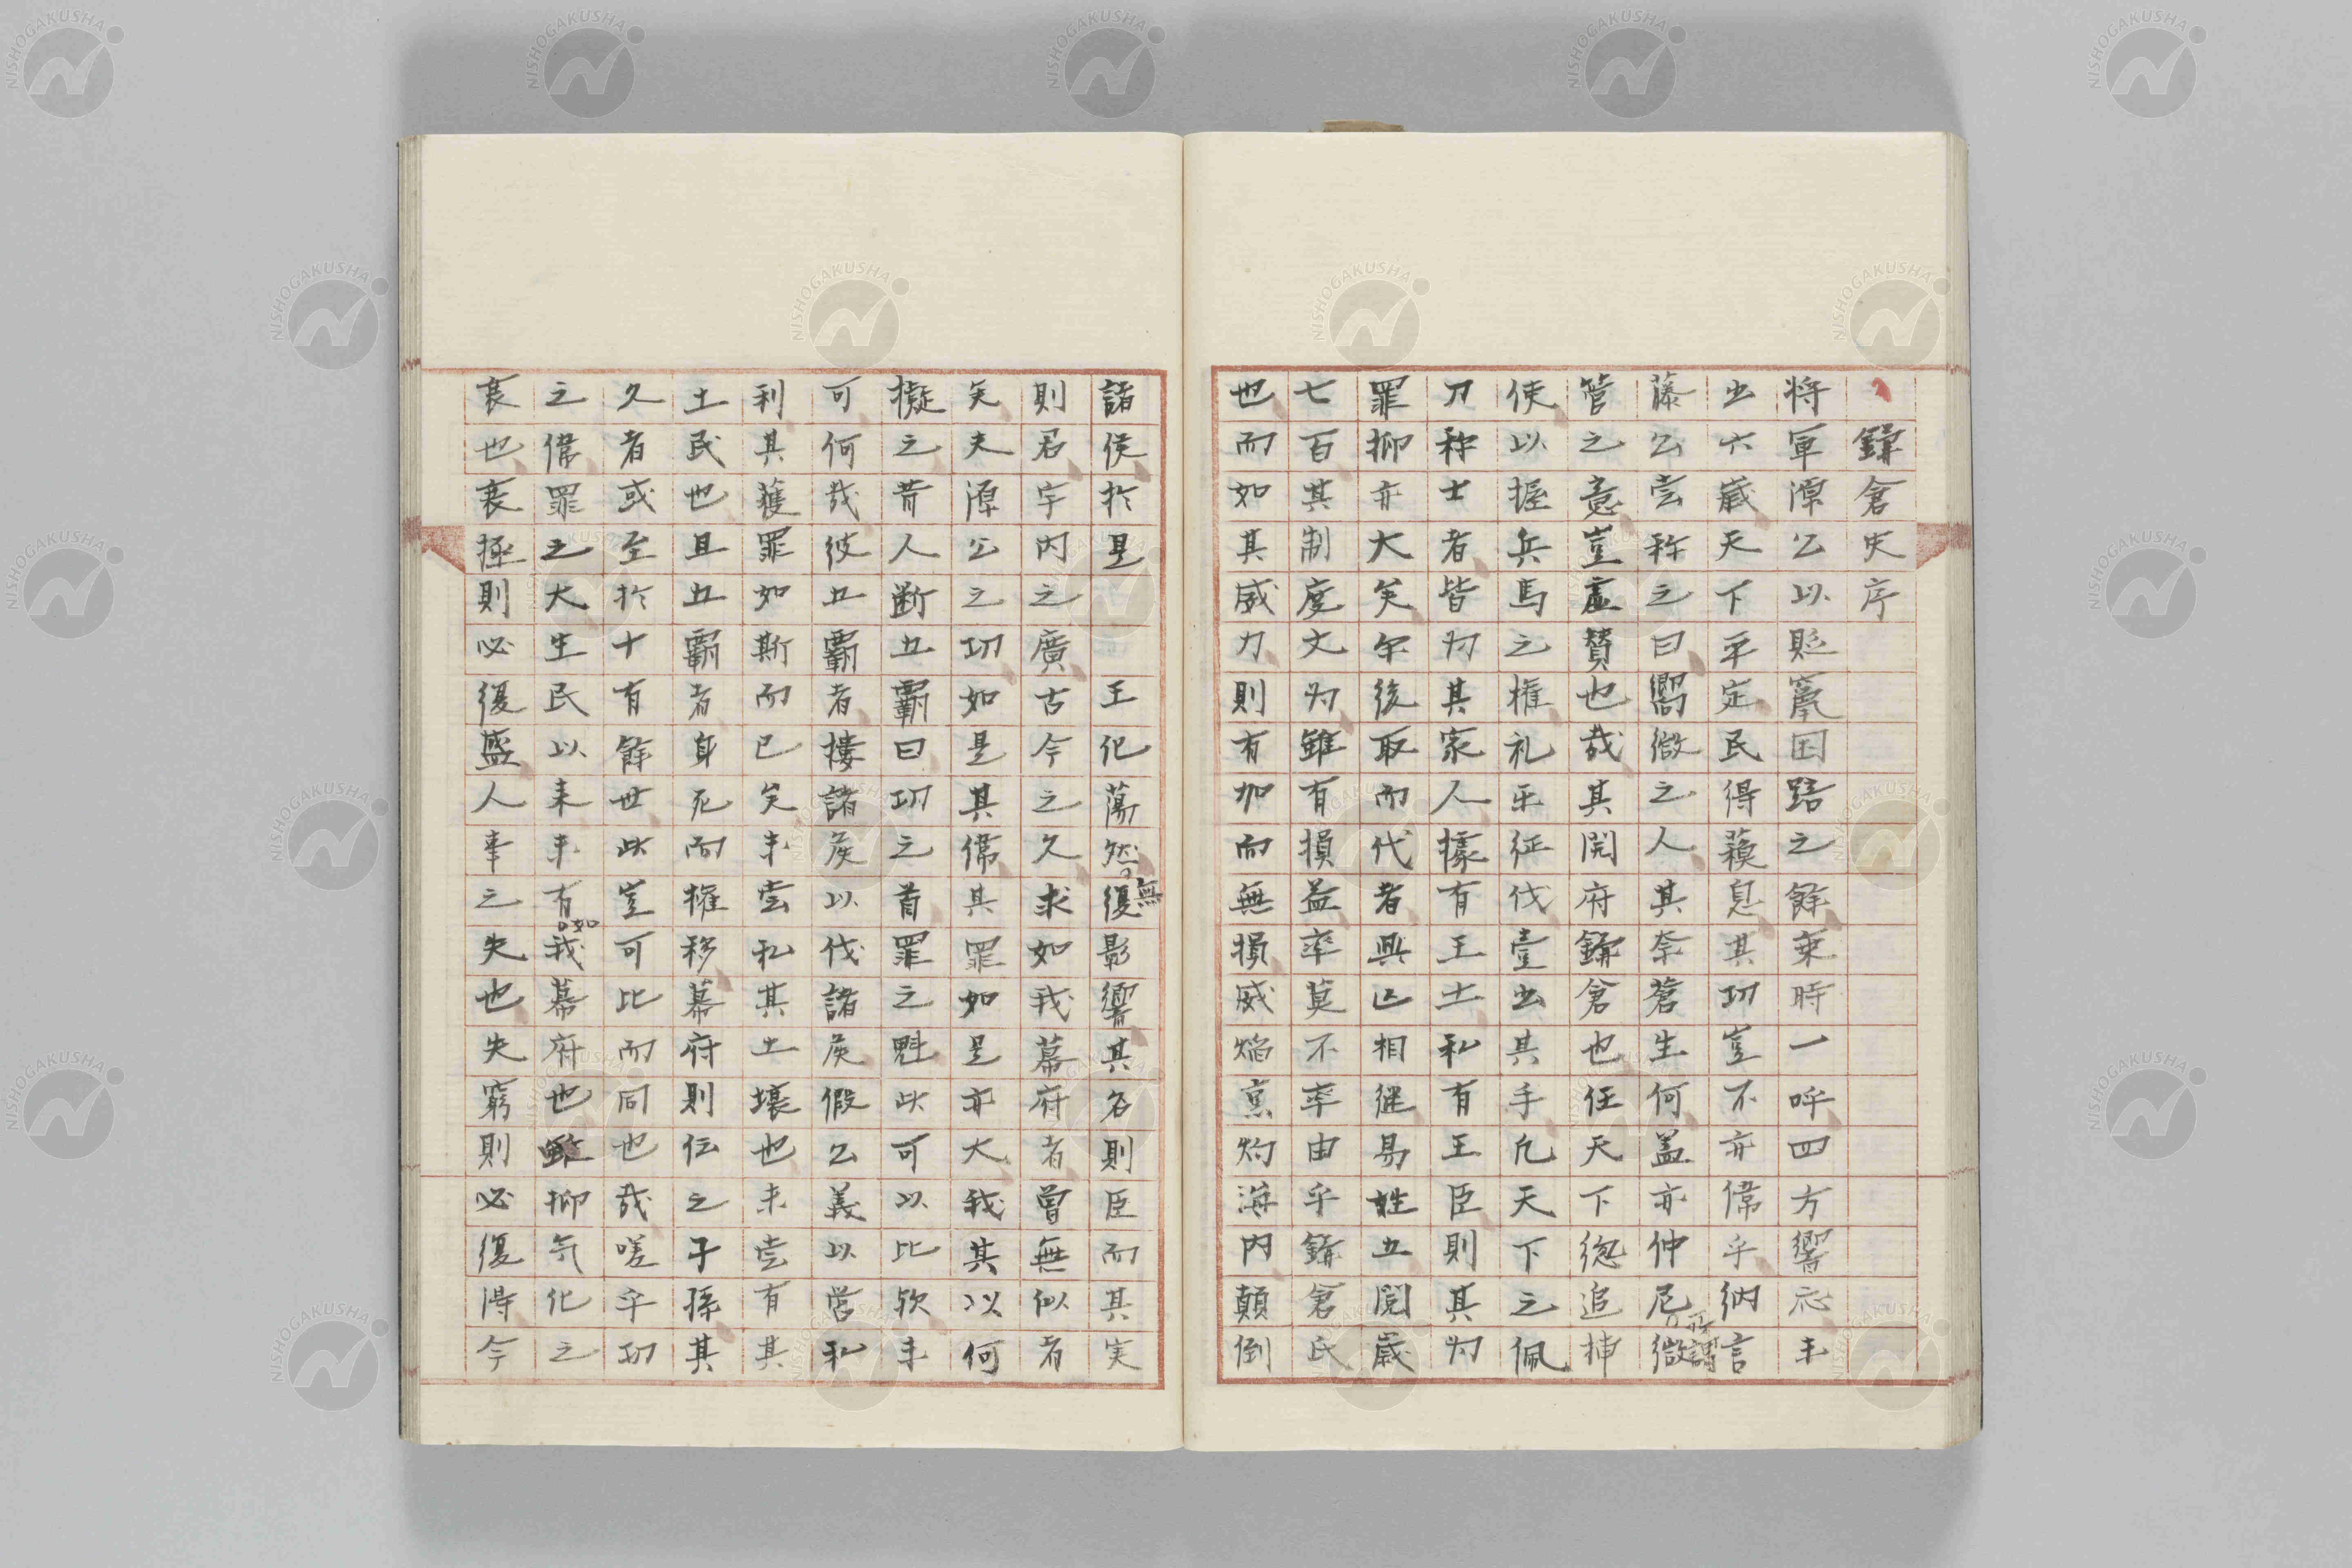 鎌倉史序
将軍源公以貶竄困踣之餘乗時一呼四方響応未
出六歳天下平定民得蘓息其功豈不亦偉乎納言
藤公嘗称之曰嚮微之人其奈蒼生何盖亦仲尼所謂微
管之意豈虚賛也哉其開府鎌倉也任天下総追捕
使以握兵馬之権礼楽征伐壹出其手凡天下之佩
刀称士者皆为其家人據有王土私有王臣則其为
罪抑亦大矣尓後取而代者興亡相継易姓五閲歳
七百其制度文为雖有損益率莫不率由乎鎌倉氏
也而如其威力則有加而無損威焔熏灼海内顛倒
諸侯於是　王化蕩然無復影響其名則臣而其実
則君宇内之廣古今之久求如我幕府者曽無似者
矣夫源公之功如是其偉其罪如是亦大我其以何
擬之昔人断五覇曰功之首罪之魁此可以比欤未
可何哉彼五覇者摟諸侯以伐諸侯假公義以営私
利其獲罪如斯而已矣未嘗私其土壌也未嘗有其
土民也且五覇者身死而権移幕府則伝之子孫其
久者或至於十有餘世此豈可比而同也哉嗟乎功
之偉罪之大生民以来未有如我幕府也歟抑気化之
衰也衰極則必復盛人事之失也失窮則必復得今
NISHOGAKUSHA